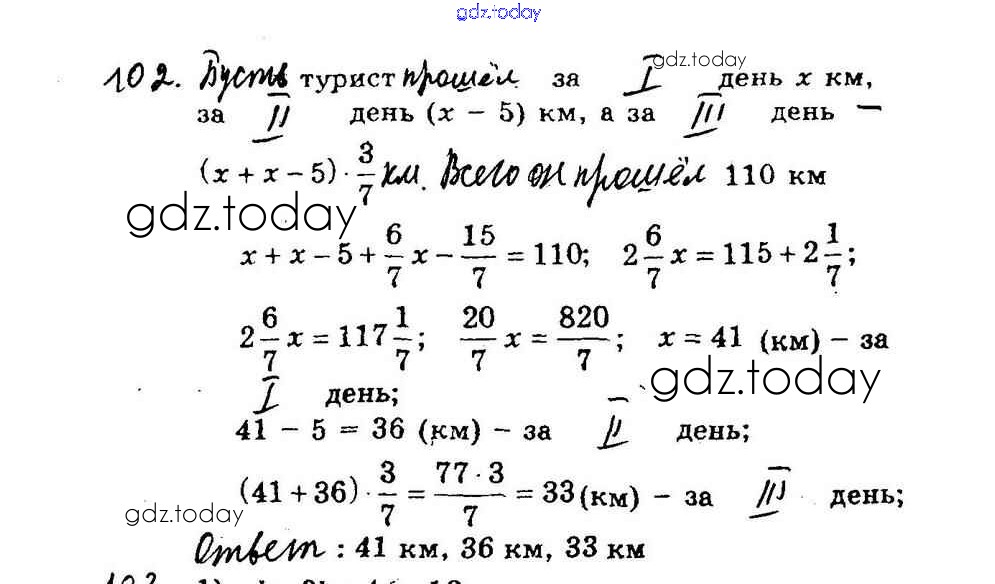 gdz.today
gdz.today
102. Пусть турист прошёл за I день x км,
за II день (x − 5) км, а за III день −
(x + x − 5) · 3/7 км. Всего он прошёл 110 км
gdz.today
x + x − 5 + 6/7 x − 15/7 = 110; 2 6/7 x = 115 + 2 1/7;
2 6/7 x = 117 1/7; 20/7 x = 820/7; x = 41 (км) − за
gdz.today
I день;
41 − 5 = 36 (км) − за II день;
(41 + 36) · 3/7 = 77 · 3/7 = 33 (км) − за III день;
gdz.today
Ответ : 41 км, 36 км, 33 км